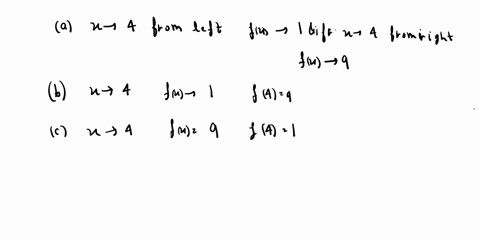 (a) x → 4 from left f(x) → 1 & if x → 4 from right
f(x) → 9
(b) x → 4 f(x) → 1 f(4) = 9
(c) x → 4 f(x) = 9 f(4) = 1